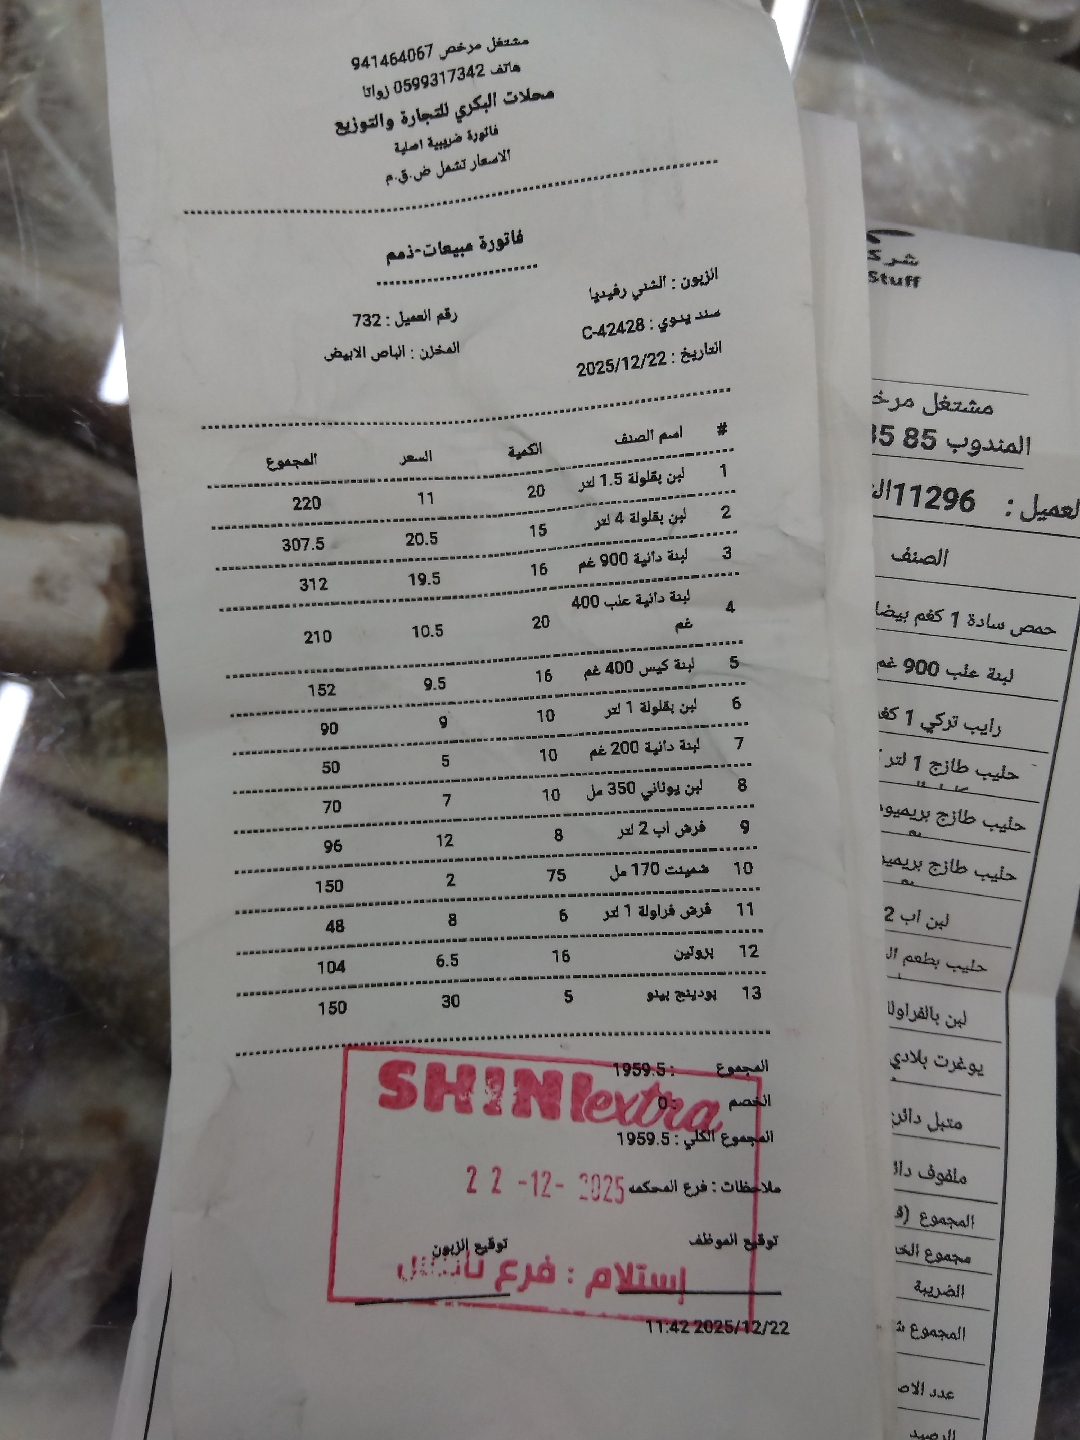 مشتغل مرخص 941464067
هاتف 0599317342 زواتا
محلات البكري للتجارة والتوزيع
فاتورة ضريبية اصلية
الاسعار تشمل ض.ق.م
فاتورة مبيعات-ذمم
الزبون : الشني رفيديا
رقم العميل : 732
سند يدوي : C-42428
المخزن : الباص الابيض
التاريخ : 2025/12/22
# اسم الصنف الكمية السعر المجموع
1 لبن بقلولة 1.5 لتر 20 11 220
2 لبن بقلولة 4 لتر 15 20.5 307.5
3 لبنة دانية 900 غم 16 19.5 312
4 لبنة دانية علب 400 غم 20 10.5 210
5 لبنة كيس 400 غم 16 9.5 152
6 لبن بقلولة 1 لتر 10 9 90
7 لبنة دانية 200 غم 10 5 50
8 لبن يوناني 350 مل 10 7 70
9 فرش اب 2 لتر 8 12 96
10 شمينت 170 مل 75 2 150
11 فرش فراولة 1 لتر 6 8 48
12 بروتين 16 6.5 104
13 بودينج بينو 5 30 150
المجموع : 1959.5
الخصم : 0
المجموع الكلي : 1959.5
ملاحظات : فرع المحكمه
توقيع الموظف توقيع الزبون
11:42 2025/12/22
SHINI extra
22 -12- 2025
إستلام : فرع
شركة
Stuff
مشتغل
المندوب 85
العميل : 11296
الصنف
حمص سادة 1 كغم
لبنة علب 900 غم
رايب تركي 1
حليب طازج 1 لتر
حليب طازج
حليب طازج
لبن اب 2
حليب بطعم
لبن بالفراولة
يوغرت بلادي
متبل
ملفوف
المجموع
مجموع
الضريبة
المجموع
عدد
الرصيد